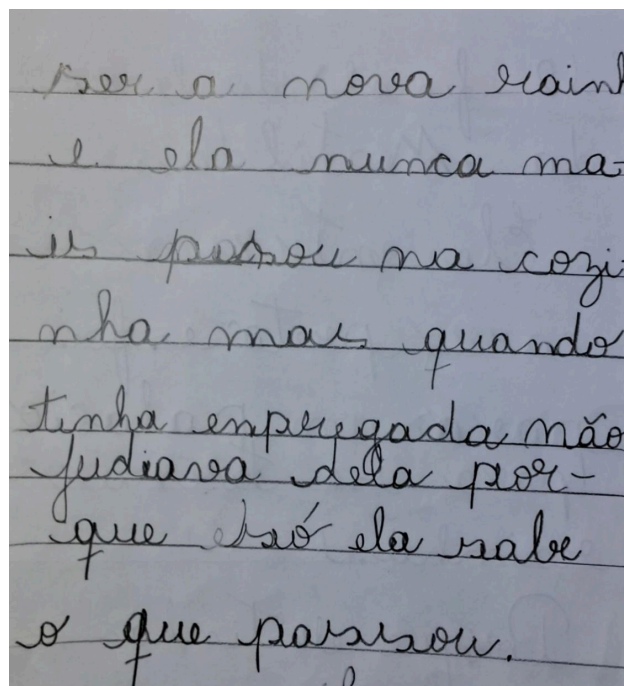 ser a nova rainh
e ela nunca ma-
is passou na cozi-
nha mas quando
tinha enpregada não
judiava dela por-
que só ela sabe
o que passou.